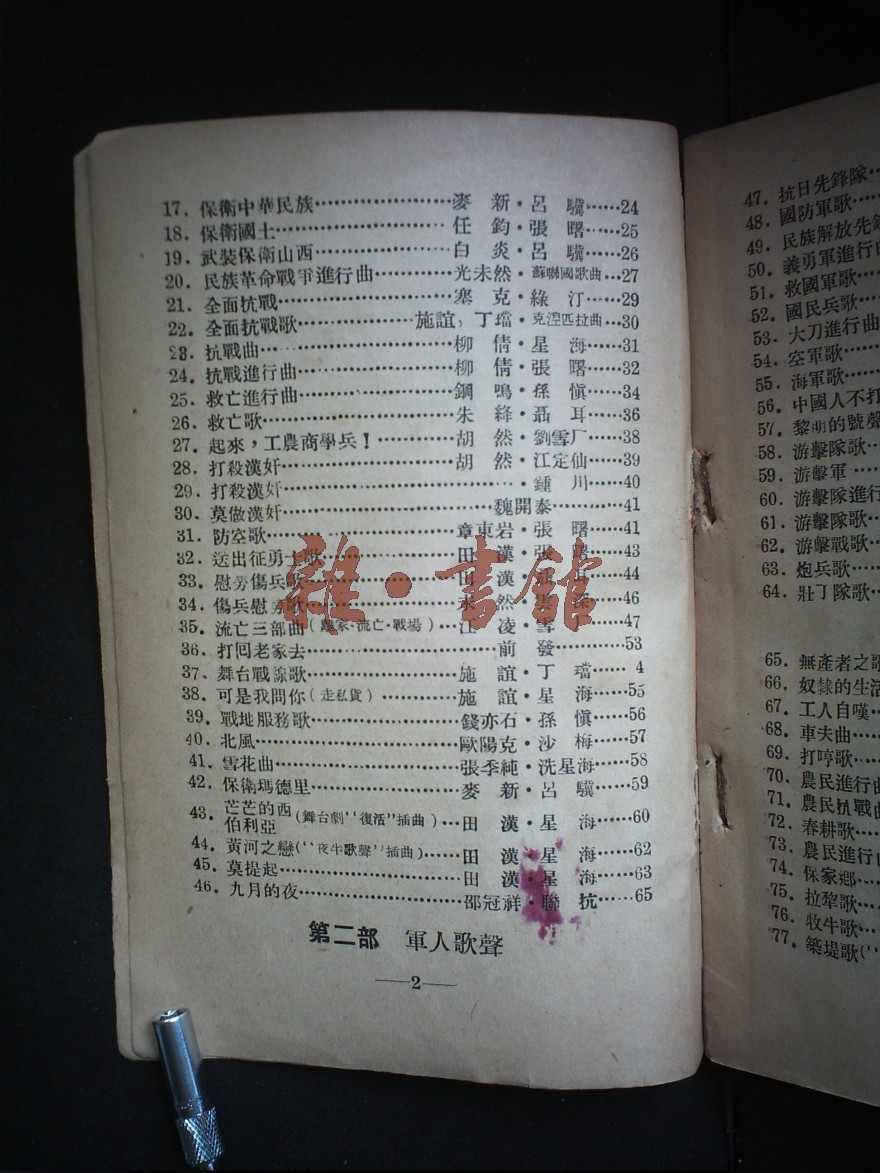 17. 保衛中華民族……………麥 新·呂 驥……24
18. 保衛國土…………………任 鈞·張 曙……25
19. 武裝保衛山西……………白 炎·呂 驥……26
20. 民族革命戰爭進行曲………光未然·蘇聯國歌曲…27
21. 全面抗戰…………………塞 克·綠 汀……29
22. 全面抗戰歌……………施誼，丁璫·克涅匹拉曲…30
23. 抗戰曲……………………柳 倩·星 海……31
24. 抗戰進行曲………………柳 倩·張 曙……32
25. 救亡進行曲………………鋼 鳴·孫 愼……34
26. 救亡歌……………………朱 絳·聶 耳……36
27. 起來，工農商學兵！………胡 然·劉雪厂……38
28. 打殺漢奸…………………胡 然·江定仙……39
29. 打殺漢奸……………………………鍾 川……40
30. 莫做漢奸…………………………魏開泰………41
31. 防空歌……………………章東岩·張 曙……41
32. 送出征勇士歌……………田 漢·張 曙……43
33. 慰勞傷兵歌………………田 漢·聶 耳……44
34. 傷兵慰勞歌…………………然·……46
35. 流亡三部曲(離家·流亡·戰場)……江 凌·雪……47
36. 打回老家去…………………前 發……53
37. 舞台戰線歌………………施 誼·丁 璫…… 4
38. 可是我問你(走私貨)………施 誼·星 海……55
39. 戰地服務歌………………錢亦石·孫 愼……56
40. 北風………………………歐陽克·沙 梅……57
41. 雪花曲……………………張季純·洗星海……58
42. 保衛瑪德里………………麥 新·呂 驥……59
43. 芒芒的西伯利亞(舞台劇"復活"插曲)…田 漢·星 海……60
44. 黃河之戀("夜牛歌聲"插曲)……田 漢·星 海……62
45. 莫提起……………………田 漢·星 海……63
46. 九月的夜…………………邵冠祥·聯 抗……65
第二部 軍人歌聲
—2—
雜·書館
47. 抗日先鋒隊…
48. 國防軍歌…
49. 民族解放先鋒
50. 義勇軍進行曲
51. 救國軍歌…
52. 國民兵歌…
53. 大刀進行曲
54. 空軍歌…
55. 海軍歌…
56. 中國人不打
57. 黎明的號聲
58. 游擊隊歌…
59. 游擊軍…
60. 游擊隊進行
61. 游擊隊歌…
62. 游擊戰歌…
63. 炮兵歌…
64. 壯丁隊歌…
65. 無產者之歌
66. 奴隸的生活
67. 工人自嘆…
68. 車夫曲…
69. 打哼歌…
70. 農民進行曲
71. 農民抗戰曲
72. 春耕歌…
73. 農民進行
74. 保家鄉…
75. 拉犂歌…
76. 牧牛歌…
77. 築堤歌("